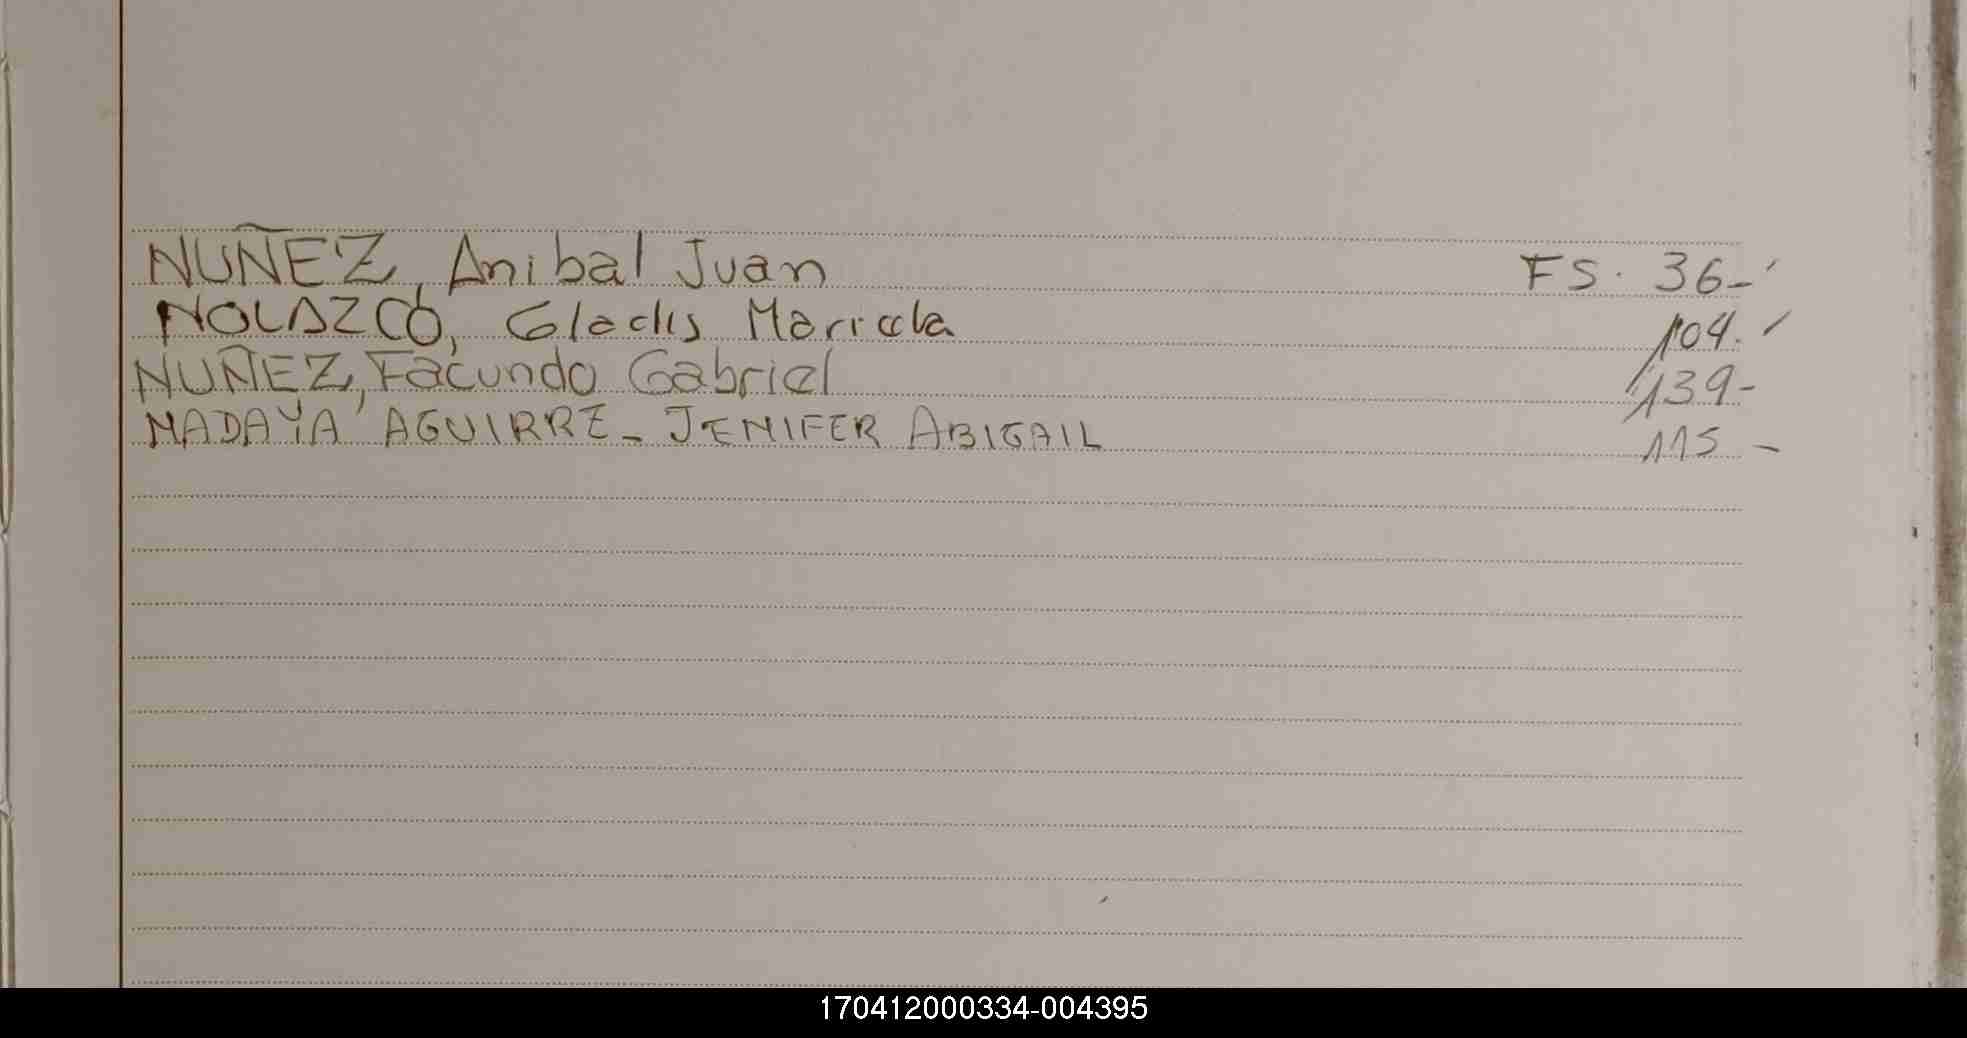 NUÑEZ, Anibal Juan FS. 36-
NOLAZCO, Gladis Maricela 104.
NUÑEZ, Facundo Gabriel 139-
NADAYA AGUIRRE - JENIFER ABIGAIL 115 -
170412000334-004395